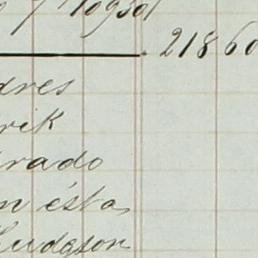 10950
21860
dres
rik
rado
n ésta,
Hudgson